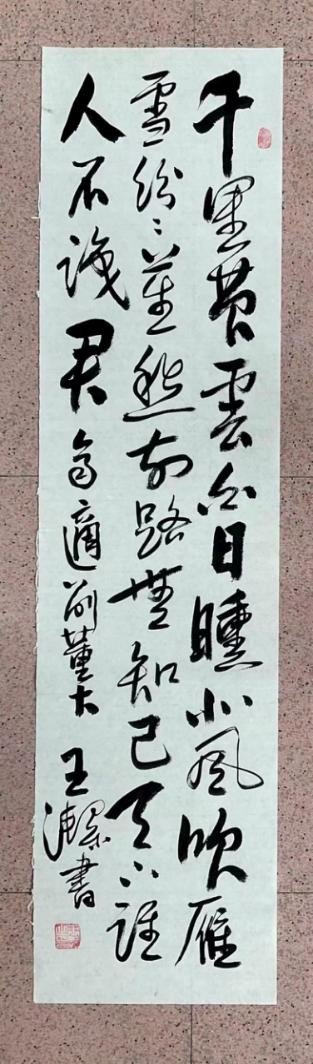 千里黄雲白日曛北風吹雁
雪紛紛莫愁前路無知己天下誰
人不識君 高適別董大 王書